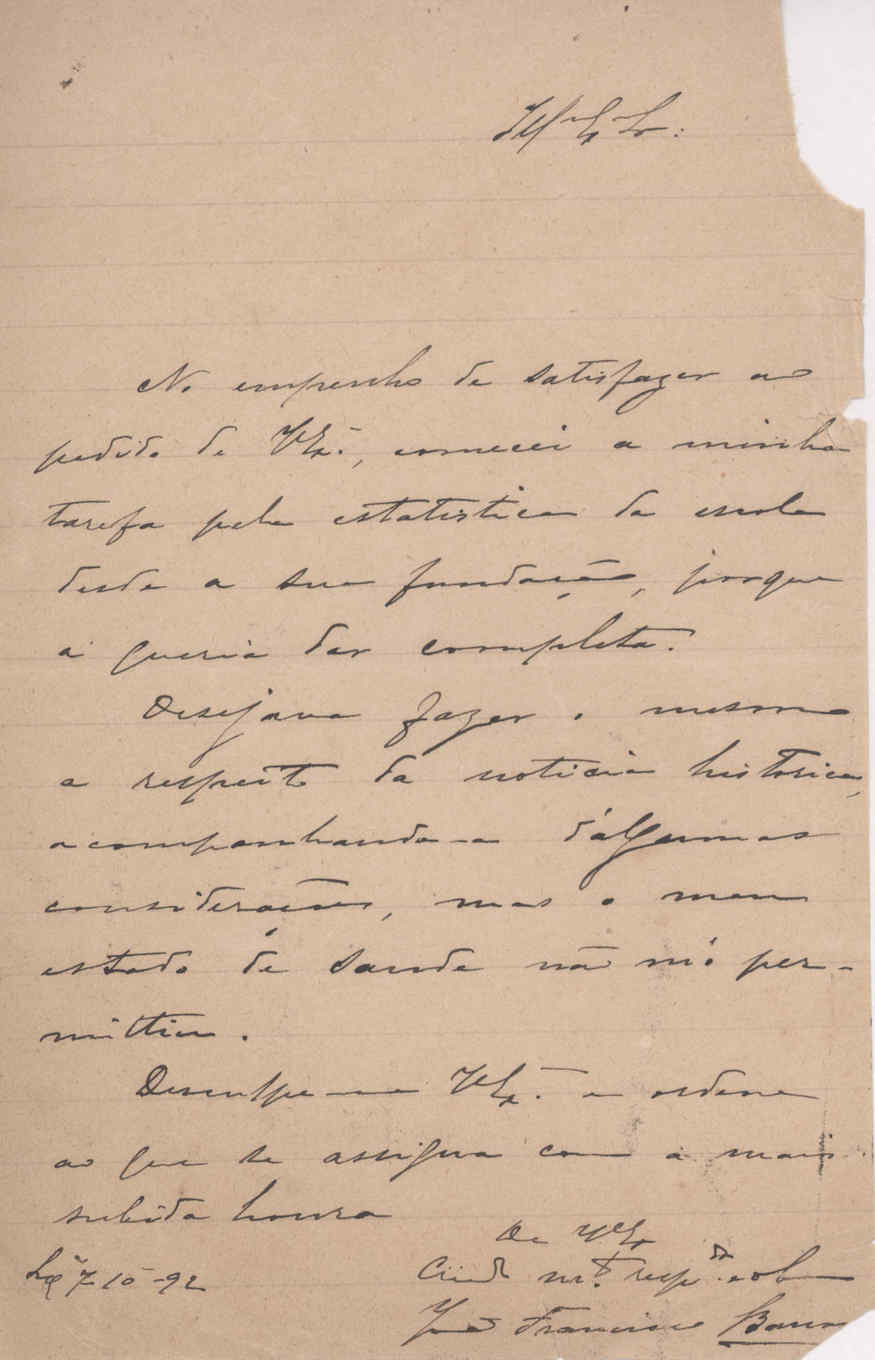 Ill.mo Ex.mo Sr.:
No empenho de satisfazer ao
pedido de V. Ex.ª, comecei a minha
tarefa pela estatistica da escola
desde a sua fundação, porque
a queria dar completa.
Desejava fazer o mesmo
a respeito da noticia historica,
acompanhando-a d'algumas
considerações, mas o meu
estado de saude não m'o per-
mittiu.
Desculpe-me V. Ex.ª e ordene
ao que se assigna com a mais
subida honra
De V. Ex.ª
7-10-92
m.to resp.dor e ob
José Francisco